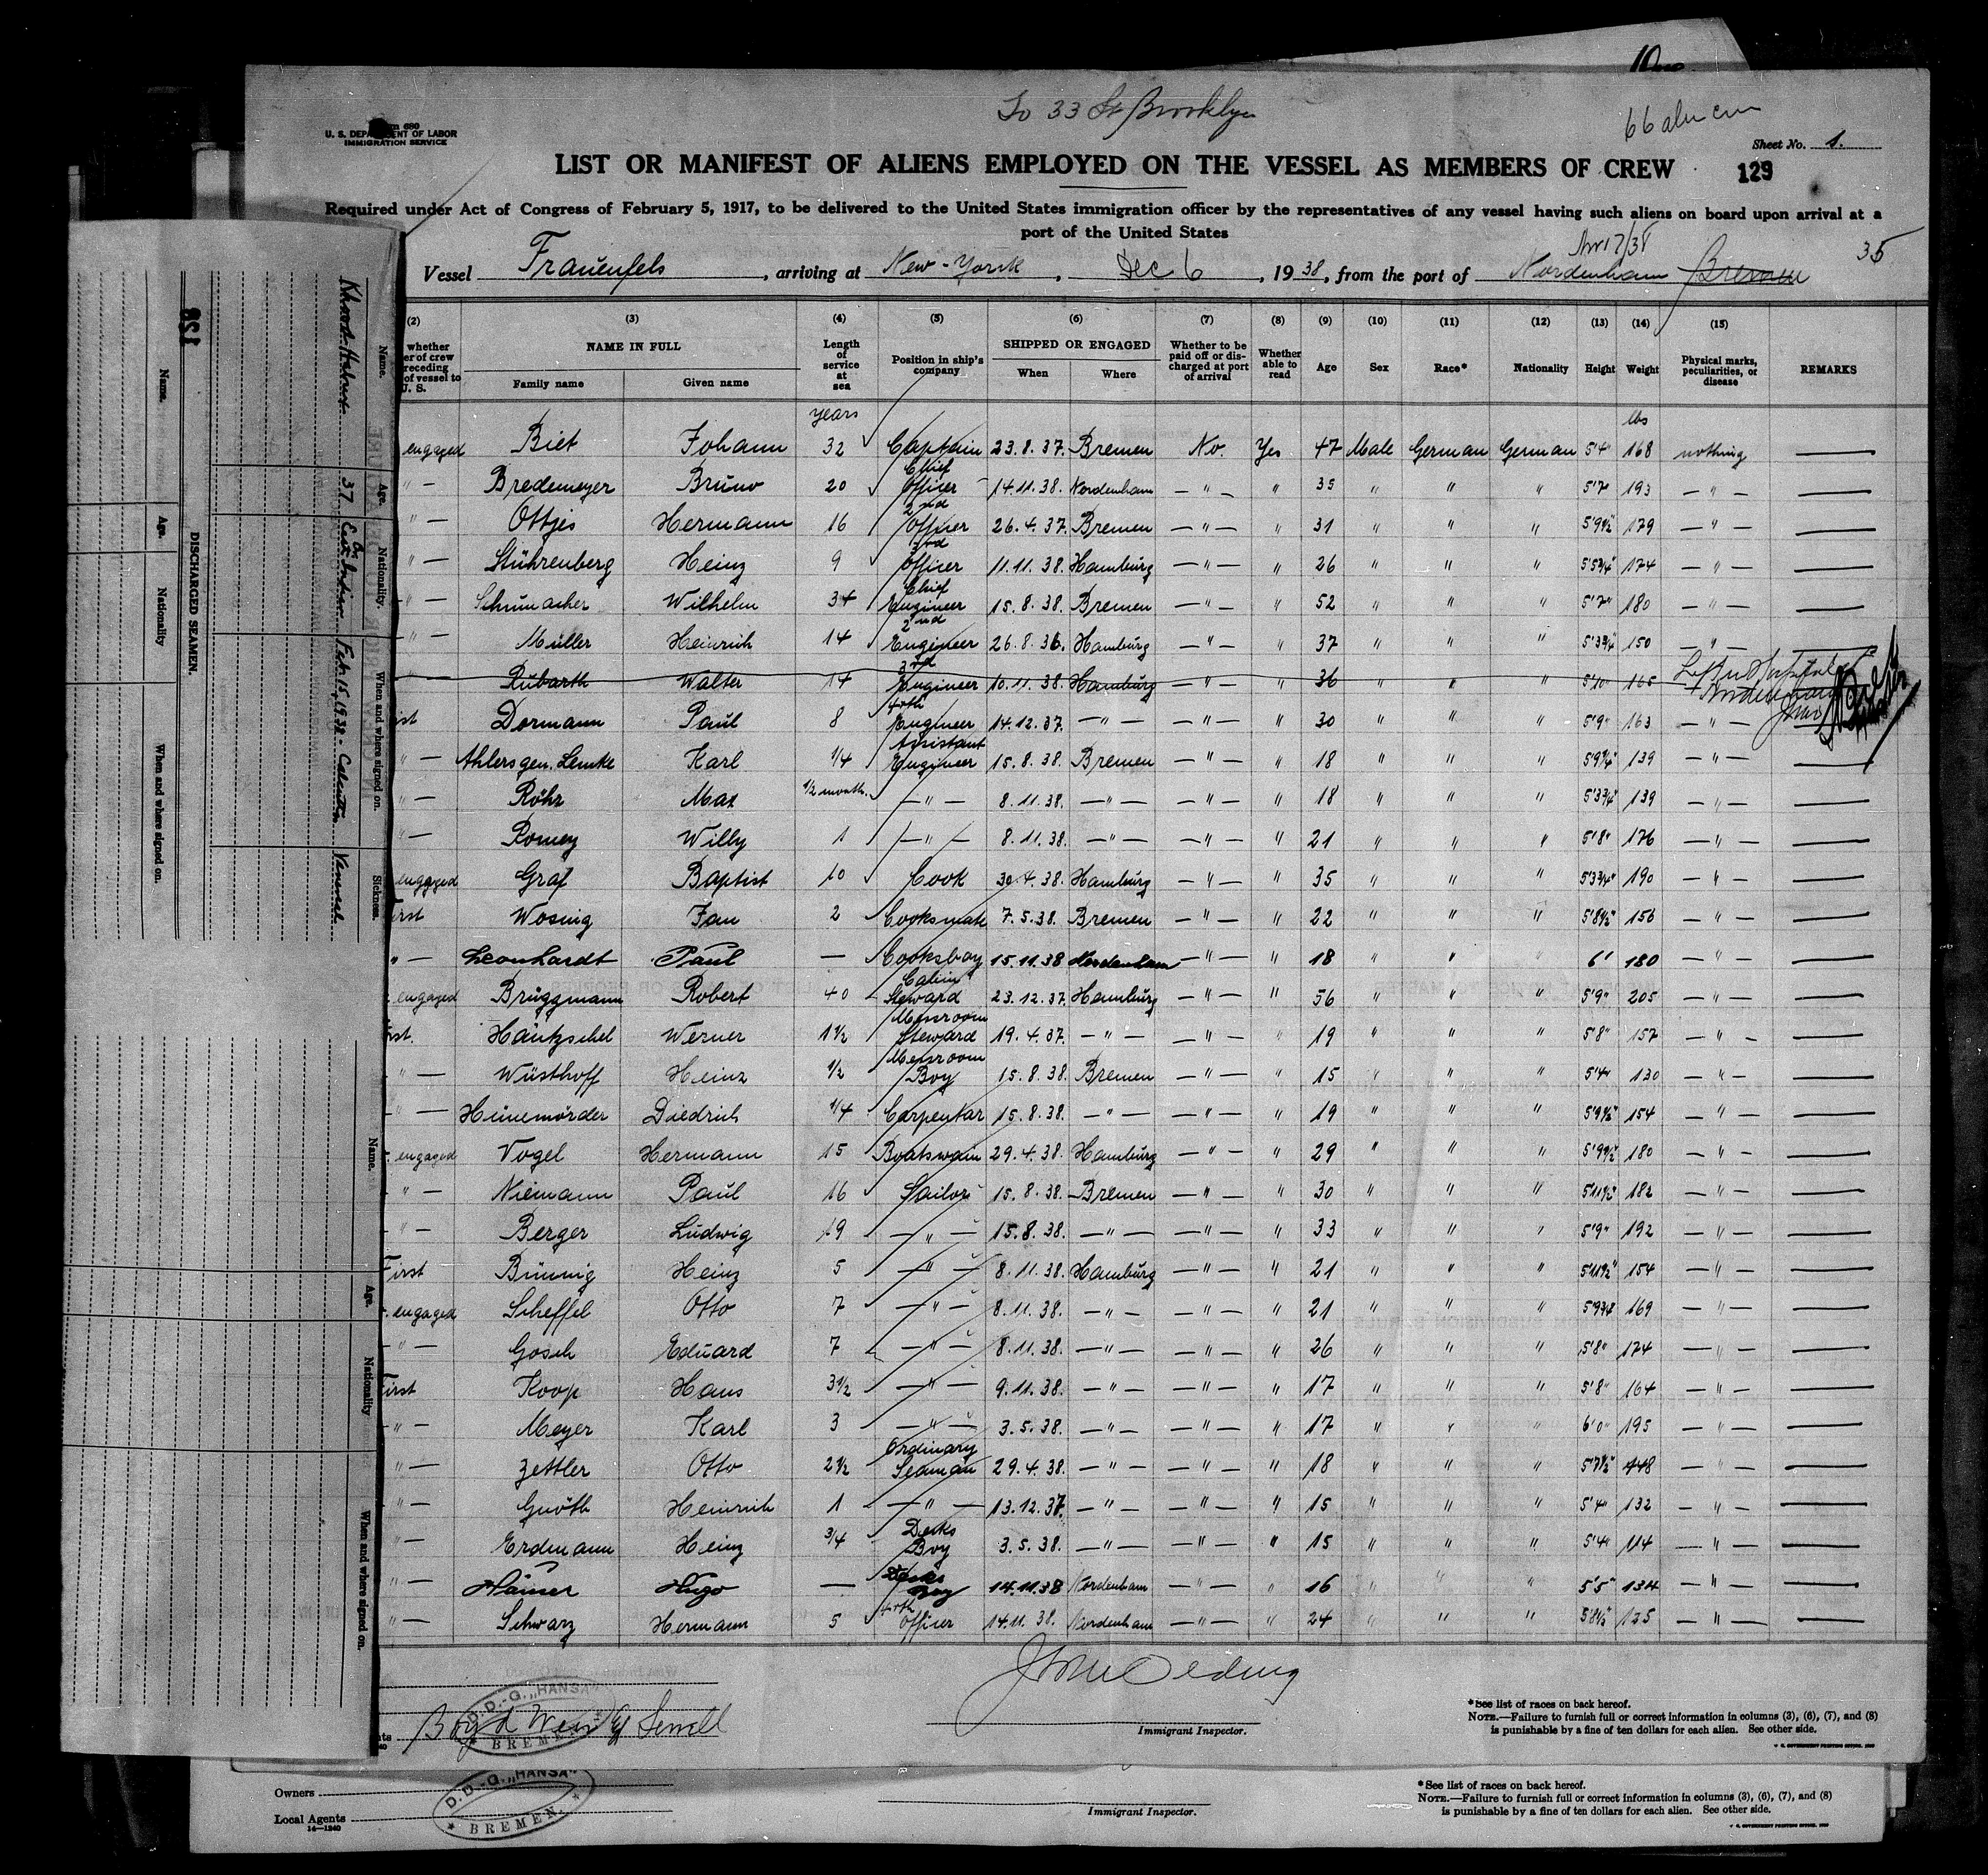 To 33 St Brooklyn
Form 680
U. S. DEPARTMENT OF LABOR
IMMIGRATION SERVICE
Sheet No. 1.
LIST OR MANIFEST OF ALIENS EMPLOYED ON THE VESSEL AS MEMBERS OF CREW
129
Required under Act of Congress of February 5, 1917, to be delivered to the United States immigration officer by the representatives of any vessel having such aliens on board upon arrival at a
port of the United States
Nov 17/38
35
Vessel Frauenfels, arriving at New-York, Dec 6, 1938, from the port of Nordenham Bremen
(2) (3) (4) (5) (6) (7) (8) (9) (10) (11) (12) (13) (14) (15)
NAME IN FULL
Family name Given name
Length of service at sea
Position in ship's company
SHIPPED OR ENGAGED
When Where
Whether to be paid off or discharged at port of arrival
Whether able to read
Age Sex Race* Nationality Height Weight
Physical marks, peculiarities, or disease
REMARKS
years lbs
engaged Biet Johann 32 Captain 23.8.37. Bremen No. Yes 47 Male German German 5'4" 168 nothing —
" — Bredemeyer Bruno 20 Chief Officer 14.11.38. Nordenham — " — " 35 " " " 5'7" 193 — " — —
" — Ottjes Hermann 16 2nd Officer 26.4.37. Bremen — " — " 31 " " " 5'9½" 179 — " — —
" — Stührenberg Heinz 9 3rd Officer 11.11.38. Hamburg — " — " 26 " " " 5'5¾" 174 — " — —
" — Schumacher Wilhelm 34 Chief Engineer 15.8.38. Bremen — " — " 52 " " " 5'7" 180 — " — —
" — Müller Heinrich 14 2nd Engineer 26.8.36. Hamburg — " — " 37 " " " 5'3¾" 150 — " — —
" — Rubarth Walter 14 3rd Engineer 10.11.38. Hamburg — " — " 36 " " " 5'10" 165 Left in Hospital
Dormann Paul 8 4rth Engineer 14.12.37. — " — — " — " 30 " " " 5'9" 163 — " —
" — Ahlers gen. Lemke Karl ¼ Assistant Engineer 15.8.38. Bremen — " — " 18 " " " 139 — " — —
" — Röhr Max ½ month. — " — 8.11.38. — " — — " — " 18 " " " 5'3¾" 139 — " — —
" — Romey Willy 1 — " — 8.11.38. — " — — " — " 21 " " " 5'8" 176 — " — —
engaged Graf Baptist 10 Cook 30.4.38. Hamburg — " — " 35 " " " 5'3¾" 190 — " — —
First Wosing Jan 2 Cooksmate 7.5.38. Bremen — " — " 22 " " " 5'8½" 156 — " — —
" — Leonhardt Paul — Cooksboy 15.11.38 Nordenham — " — " 18 " " " 6' 180 — " — —
engaged Brüggmann Robert 40 Cabin Steward 23.12.37. Hamburg — " — " 56 " " " 5'9" 205 — " — —
First. Häntzschel Werner 1½ Messroom Steward 19.4.37. — " — — " — " 19 " " " 5'8" 157 — " — —
" — Wüsthoff Heinz ½ Messroom Boy 15.8.38. Bremen — " — " 15 " " " 5'4" 130 — " — —
" — Hünemörder Diedrich ¼ Carpentar 15.8.38. — " — — " — " 19 " " " 5'9½" 154 — " — —
engaged Vogel Hermann 15 Boatswain 29.4.38. Hamburg — " — " 29 " " " 5'9½" 180 — " — —
" — Niemann Paul 16 Sailor 15.8.38. Bremen — " — " 30 " " " 5'11½" 182 — " — —
" — Berger Ludwig 19 — " — 15.8.38. — " — — " — " 33 " " " 5'9" 192 — " — —
First Bünnig Heinz 5 — " — 8.11.38. Hamburg — " — " 21 " " " 5'11½" 154 — " — —
engaged Scheffel Otto 7 — " — 8.11.38. — " — — " — " 21 " " " 5'9¾" 169 — " — —
" — Gosch Eduard 7 — " — 8.11.38. — " — — " — " 26 " " " 5'8" 174 — " — —
First Koop Hans 3½ — " — 9.11.38. — " — — " — " 17 " " " 5'8" 164 — " — —
" — Meyer Karl 3 — " — 3.5.38. — " — — " — " 17 " " " 6'0" 195 — " — —
" — Zettler Otto 2½ Ordinary Seaman 29.4.38. — " — — " — " 18 " " " 5'7½" 148 — " — —
" — Gnöth Heinrich 1 — " — 13.12.37. — " — — " — " 15 " " " 5'4" 132 — " — —
" — Erdmann Heinz ¾ Decks Boy 3.5.38. — " — — " — " 15 " " " 5'4" 114 — " — —
" — Häuser Hugo — Decks Boy 14.11.38 Nordenham — " — " 16 " " " 5'5" 134 — " — —
" — Schwarz Hermann 5 4rth Officer 14.11.38. Nordenham — " — " 24 " " " 5'8½" 135 — " — —
Immigrant Inspector.
D. D.-G. „HANSA" BREMEN
* See list of races on back hereof.
NOTE.—Failure to furnish full or correct information in columns (3), (6), (7), and (8)
is punishable by a fine of ten dollars for each alien. See other side.
Owners
Local Agents
14—1240
D. D.-G. „HANSA" BREMEN.
Immigrant Inspector.
* See list of races on back hereof.
NOTE.—Failure to furnish full or correct information in columns (3), (6), (7), and (8)
is punishable by a fine of ten dollars for each alien. See other side.
128
DISCHARGED SEAMEN.
Name. Age. Nationality When and where signed on.
Name. Age. Nationality. When and where signed on. Sickness.
37 East Indian Feb. 15, 1938 - Calcutta Venereal.
Name. Age. Nationality When and where signed on.